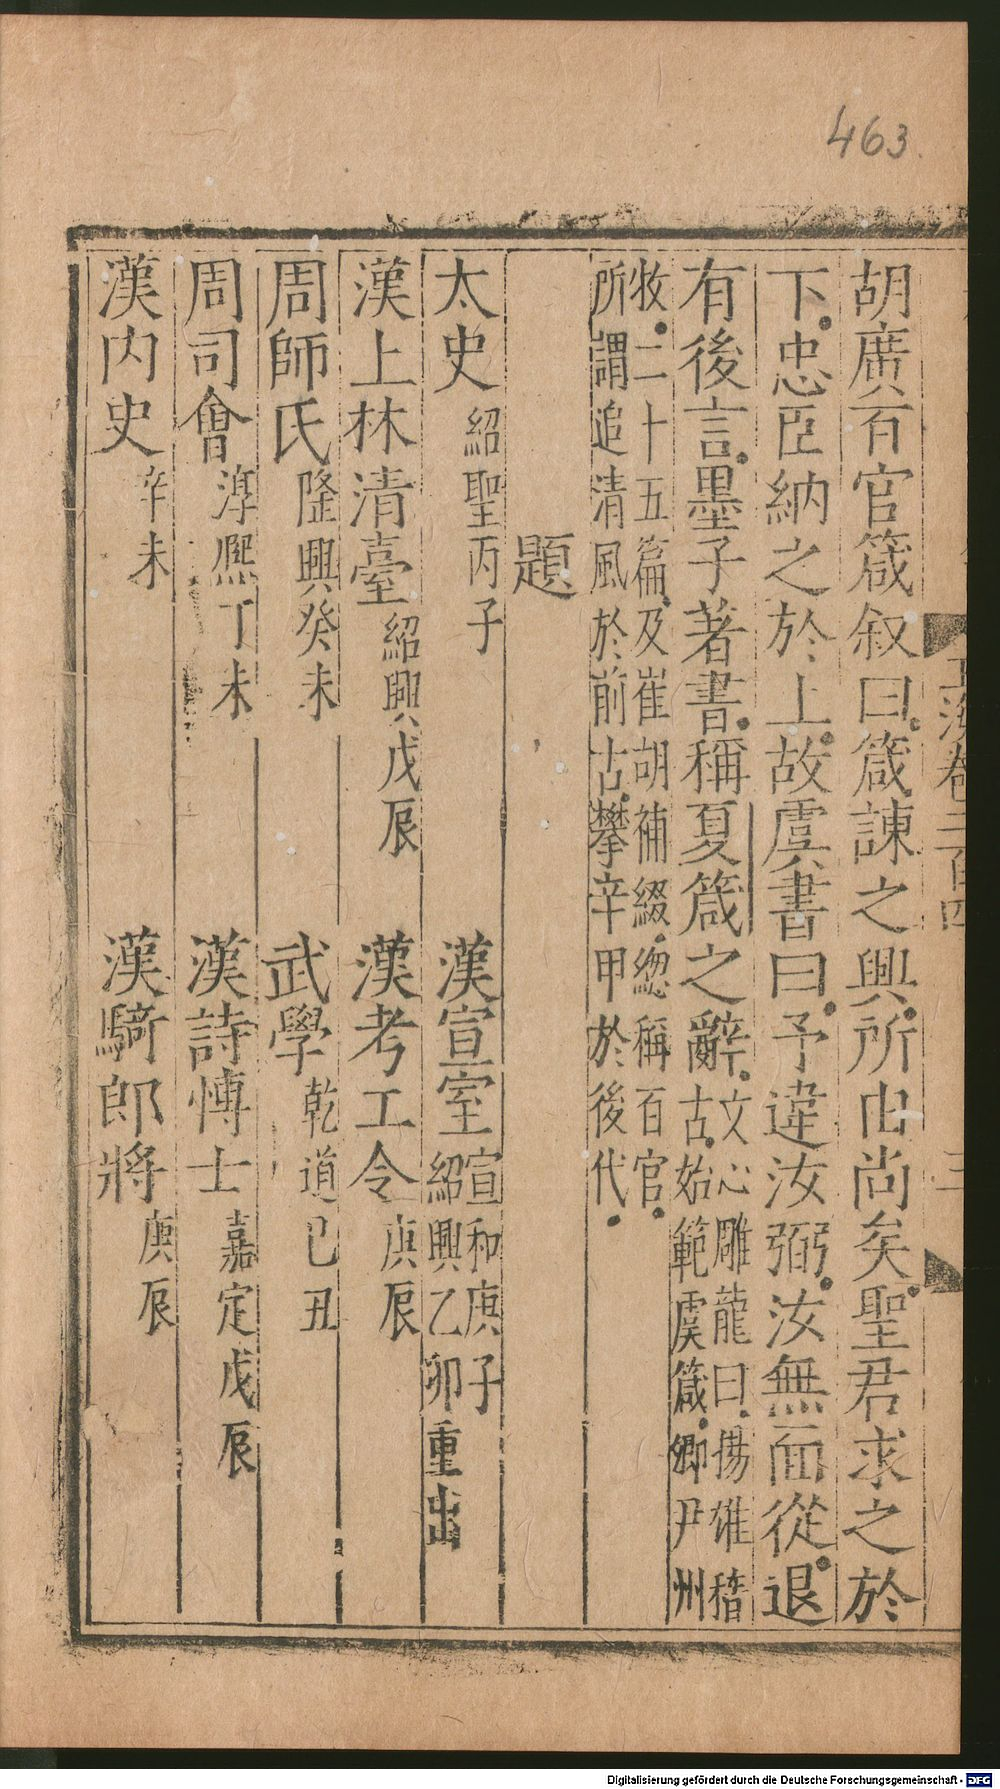 463
玉海卷二百四
三
胡廣百官箴叙曰箴諫之興所由尚矣聖君求之於
下忠臣納之於上故虞書曰予違汝弼汝無面從退
有後言墨子著書稱夏箴之辭文心雕龍曰揚雄稽
古始範虞箴卿尹州
牧二十五篇及崔胡補綴緫稱百官
所謂追清風於前古攀辛甲於後代
題
太史紹聖丙子 漢宣室宣和庚子
紹興乙卯重出
漢上林清臺紹興戊辰 漢考工令庚辰
周師氏隆興癸未 武學乾道已丑
周司會淳熈丁未 漢詩博士嘉定戊辰
漢内史辛未 漢騎郎將庚辰
Digitalisierung gefördert durch die Deutsche Forschungsgemeinschaft - DFG